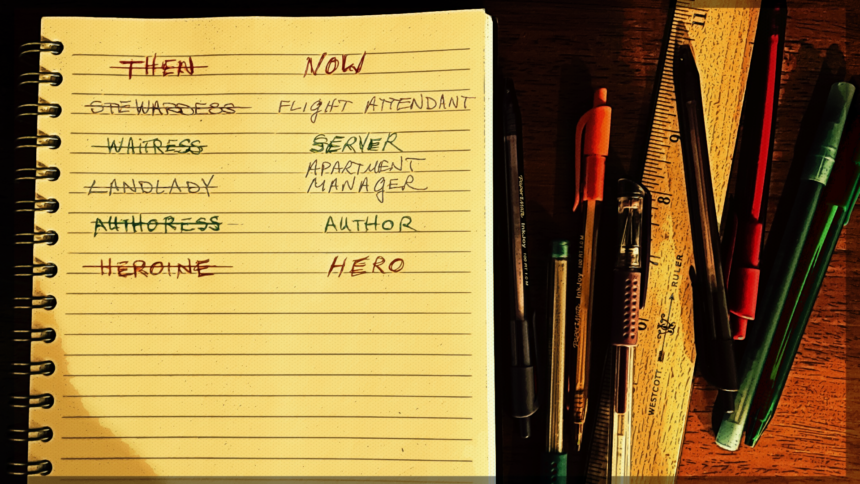 THEN NOW
STEWARDESS FLIGHT ATTENDANT
WAITRESS SERVER
LANDLADY APARTMENT MANAGER
AUTHORESS AUTHOR
HEROINE HERO
11
9
8
WESTCOTT
RULER